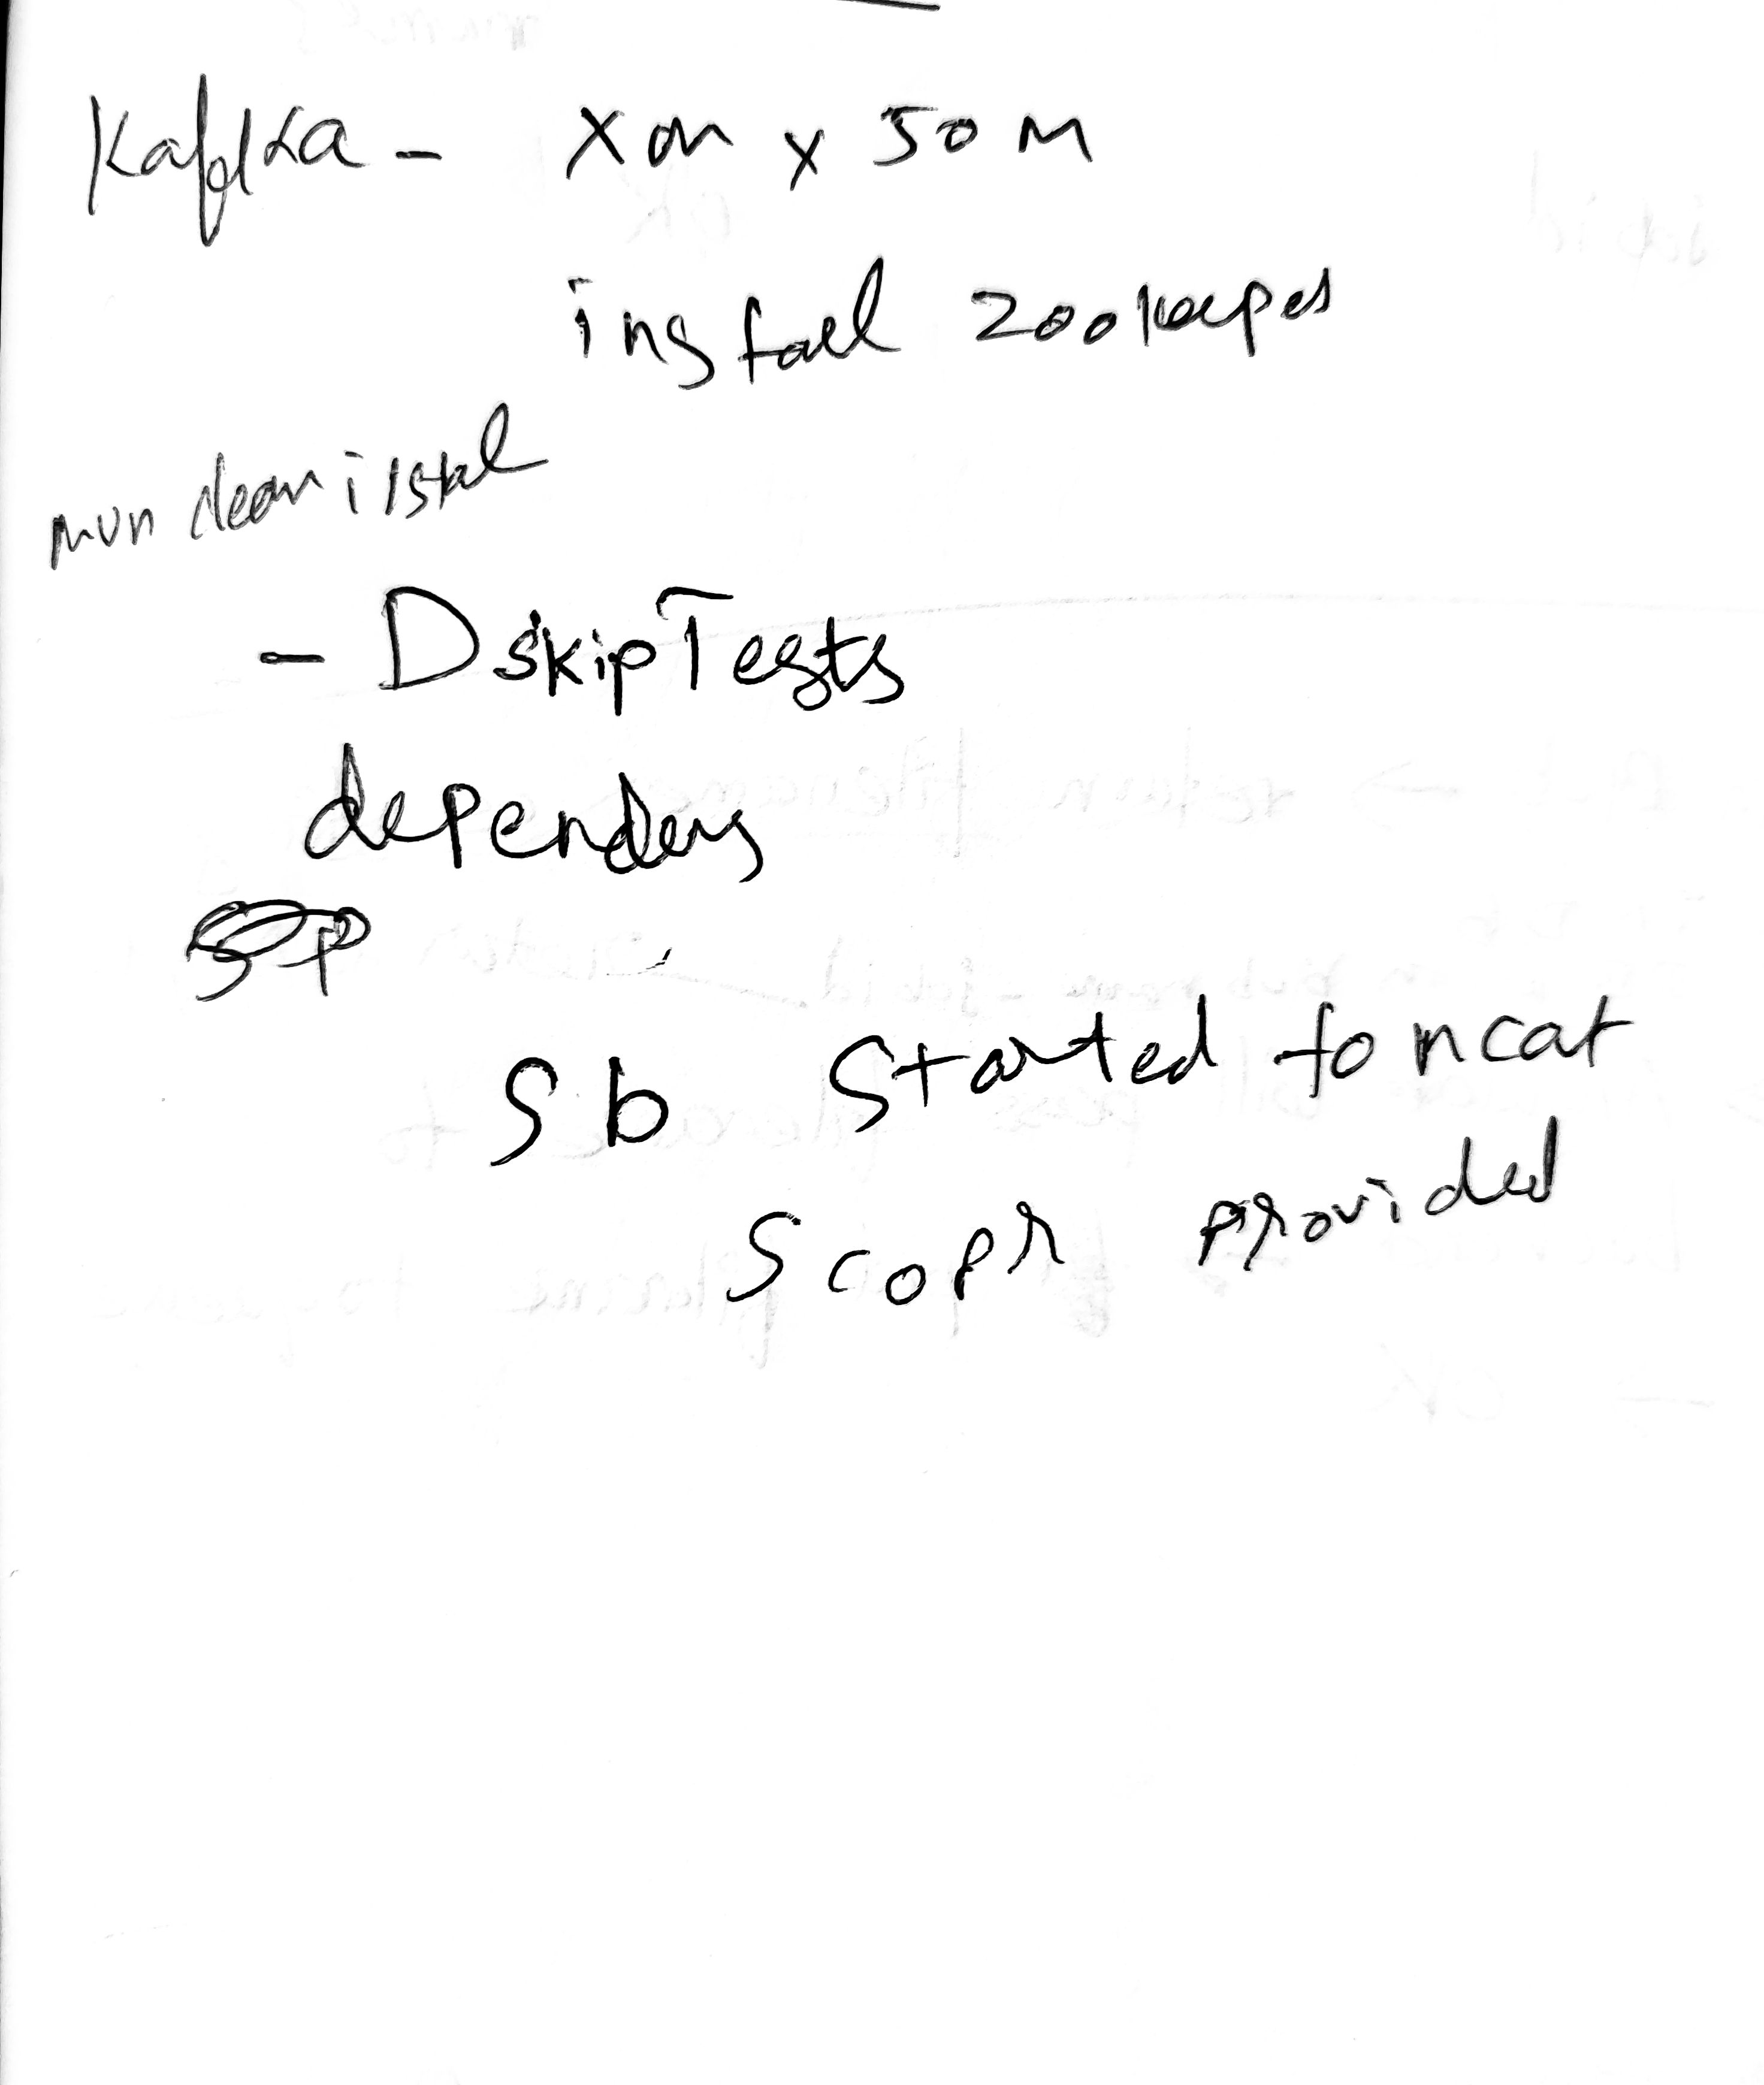 Kafka - xmx 50M
install zookeeper
mvn clean install
- DskipTests
dependency
sb started tomcat
scope provided